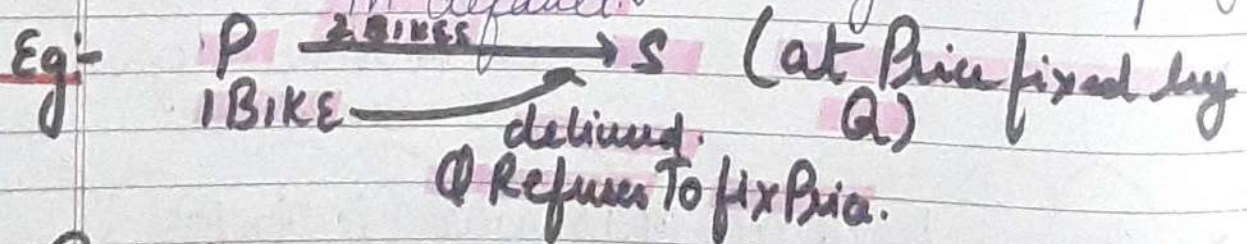 in default.
Eg:- P 2 BIKES S (at Price fixed by
1 BIKE delivered. Q)
Q Refuses To fix Price.